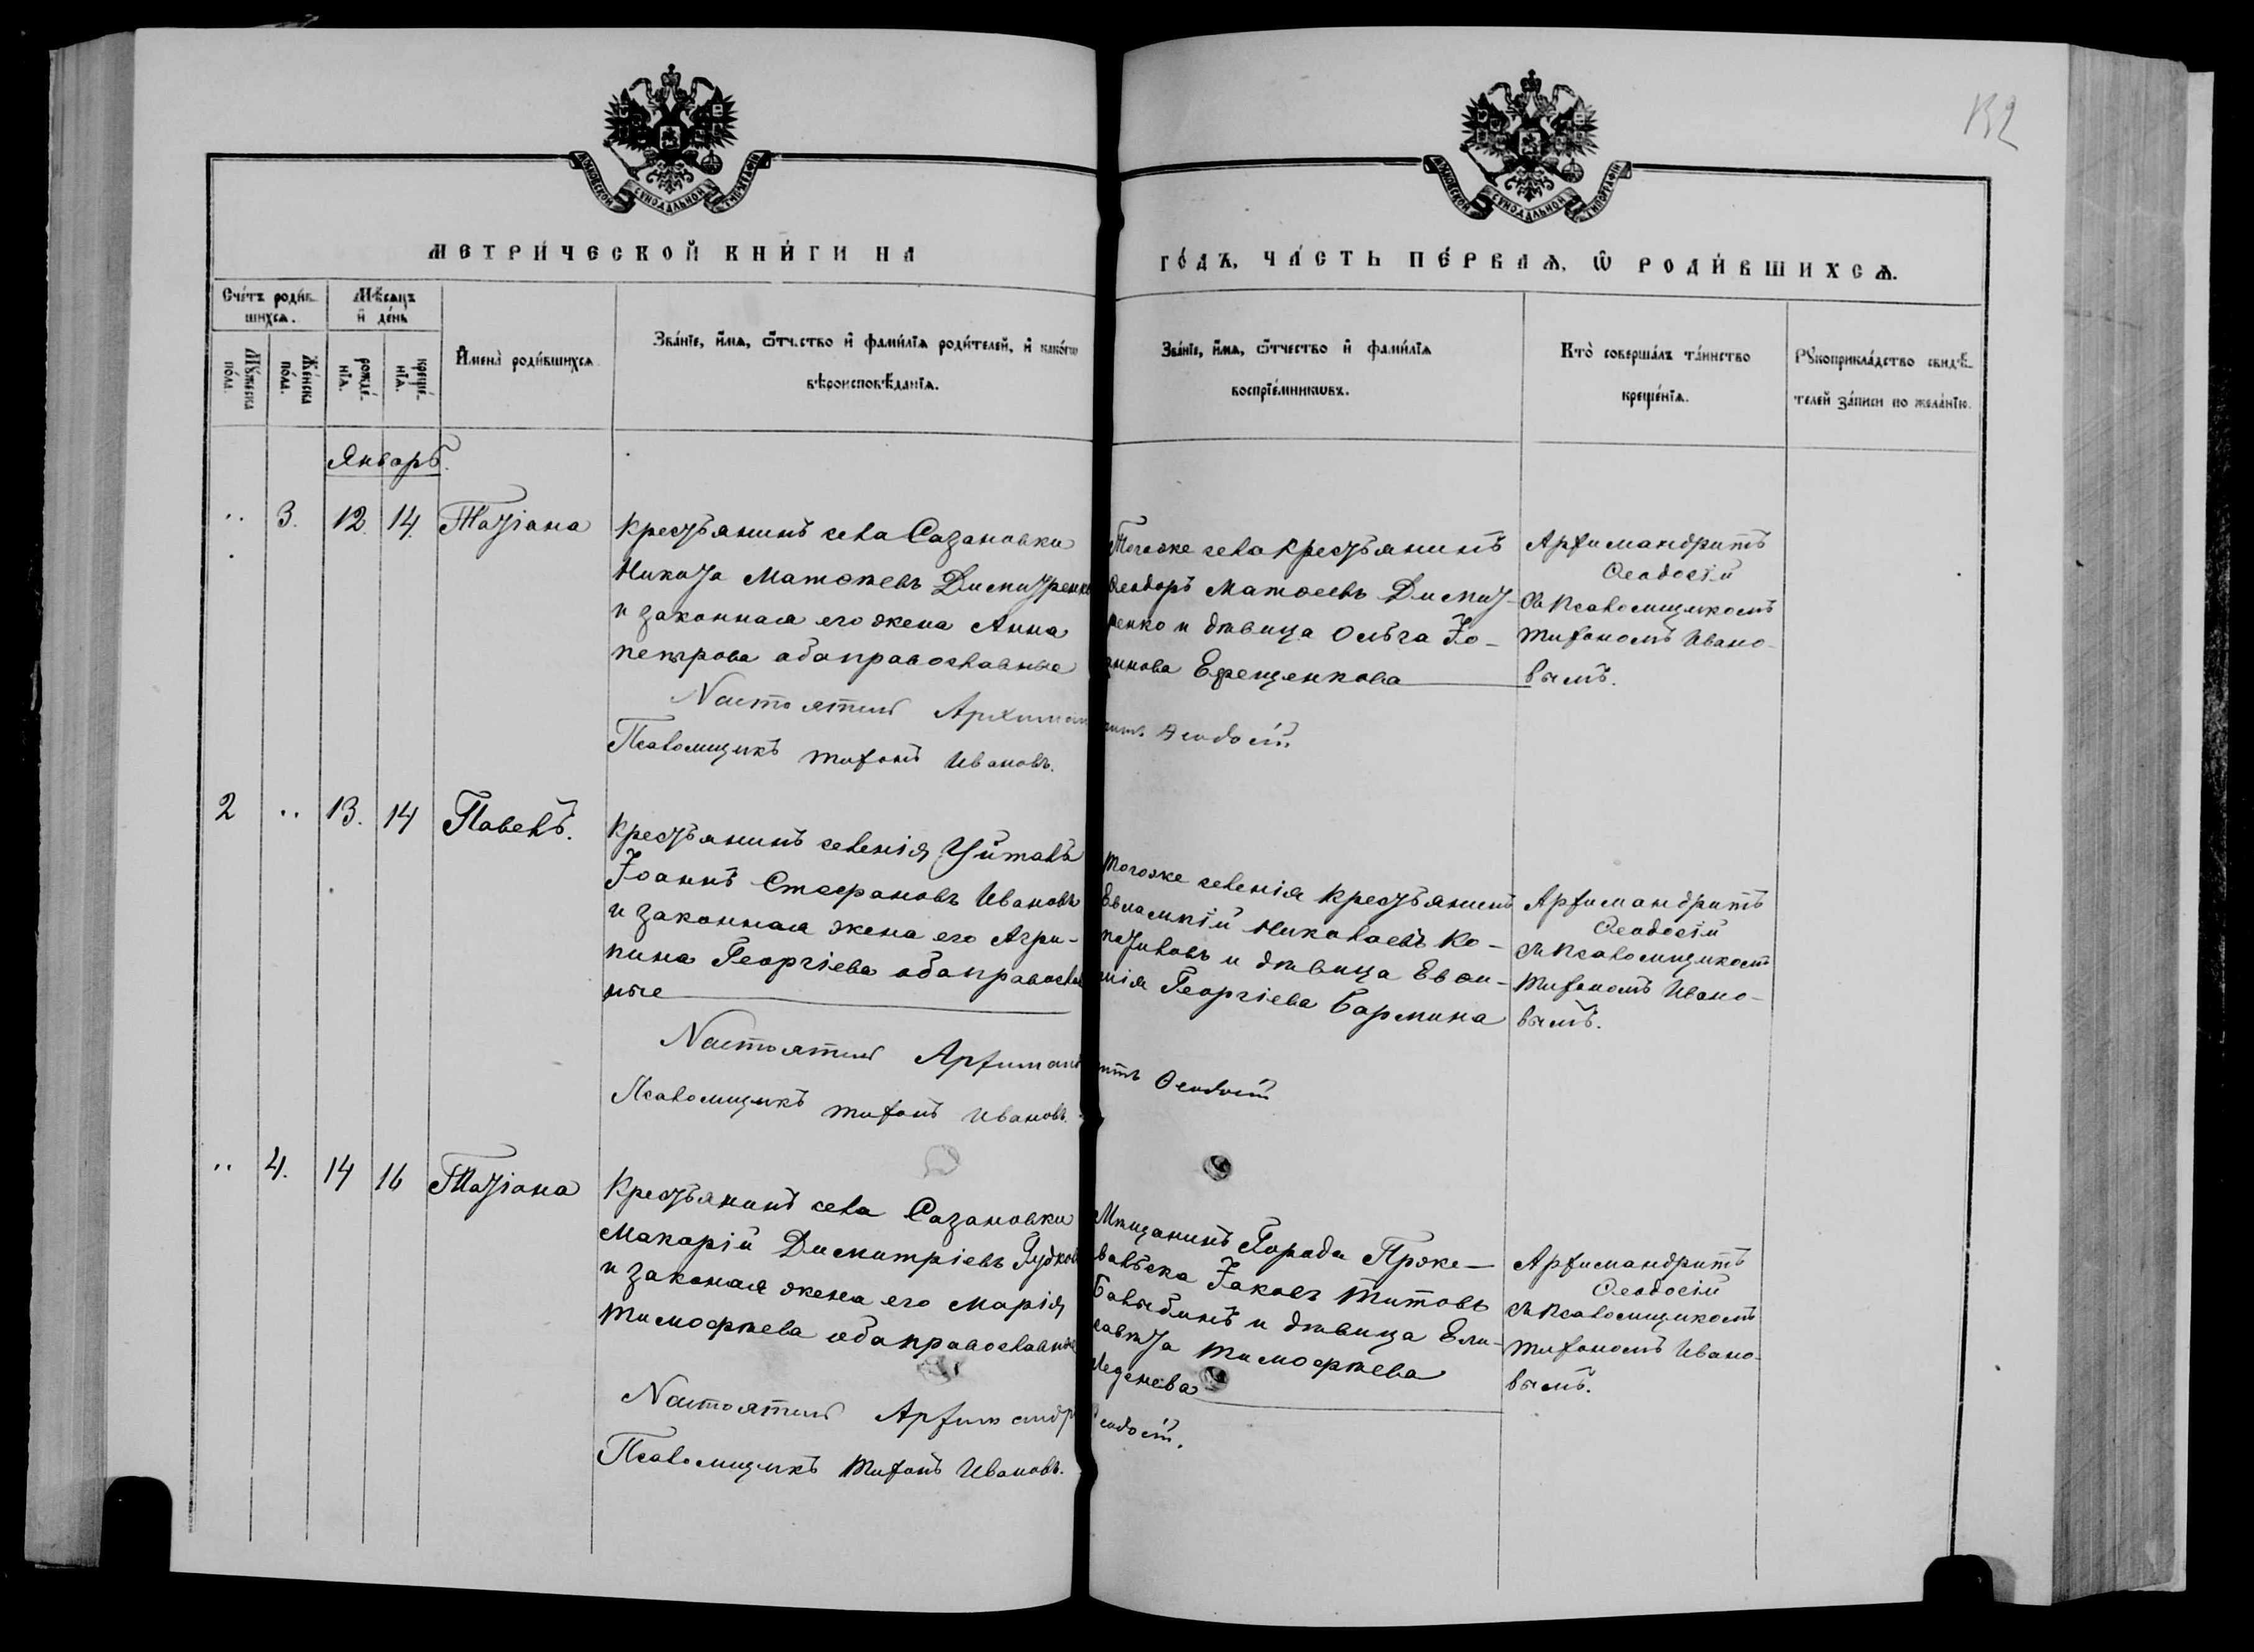 132
МОСКОВСКОЙ СѴНОДАЛЬНОЙ ТИПОГРАФІИ
МОСКОВСКОЙ СѴНОДАЛЬНОЙ ТИПОГРАФІИ
МЕТРИ́ЧЕСКОЙ КНИ́ГИ НА
ГО́ДЪ, ЧА́СТЬ ПЕ́РВАѦ, Ѿ РОДИ́ВШИХСѦ.
Сче́тъ роди́в-
шихсѧ.
Мѣ́сѧцъ
и҆ де́нь
Мꙋ́жеска по́ла.
Же́нска по́ла.
рожде́-нїѧ.
креще́-нїѧ.
И҆мена̀ роди́вшихсѧ
Зва́нїе, и҆́мѧ, ѻ҆́тчество и҆ фами́лїѧ роди́телей, и҆ како́гѡ
вѣроисповѣ́данїѧ.
Зва́нїе, и҆́мѧ, ѻ҆́тчество и҆ фами́лїѧ
воспрїе́мникѡвъ.
Кто̀ соверша́лъ та́инство
креще́нїѧ.
Рꙋкоприкла́дство свидѣ́-
телей за́писи по жела́нїю.
Январь.
.. 3. 12. 14. Татіана
Крестьянинъ села Сазановки
Никита Матѳеевъ Димитренко
и законная его жена Анна
Петрова оба православные
Тогоже села крестьянинъ
Ѳеодоръ Матѳеевъ Димит-
ренко и дѣвица Ольга Іо-
аннова Ефещенкова
Архимандритъ
Ѳеодосій
Съ Псаломщикомъ
Тихономъ Ивано-
вымъ.
Настоятель Архимандритъ Ѳеодосій
Псаломщикъ Тихонъ Ивановъ.
2 .. 13. 14 Павелъ.
Крестьянинъ селенія Уйталъ
Іоаннъ Стефановъ Ивановъ
и законная жена его Агри-
пина Георгіева оба православ
ные
Тогоже селенія крестьянинъ
Евлампій Николаевъ Ко-
пытовъ и дѣвица Евѳи-
мія Георгіева Бармина
Архимандритъ
Ѳеодосій
съ Псаломщикомъ
Тихономъ Ивано-
вымъ.
Настоятель Архимандритъ Ѳеодосій
Псаломщикъ Тихонъ Ивановъ.
.. 4. 14 16 Татіана
Крестьянинъ села Сазановки
Макарій Димитріевъ Гудковъ
и законая жена его Марія
Тимофѣева оба православные
Мѣщанинъ Города Прже-
вальска Іаковъ Титовъ
Балыбинъ и дѣвица Ели-
савета Тимофѣева
Леденева
Архимандритъ
Ѳеодосій
съ Псаломщикомъ
Тихономъ Ивано-
вымъ.
Настоятель Архимандр Ѳеодосій.
Псаломщикъ Тихонъ Ивановъ.